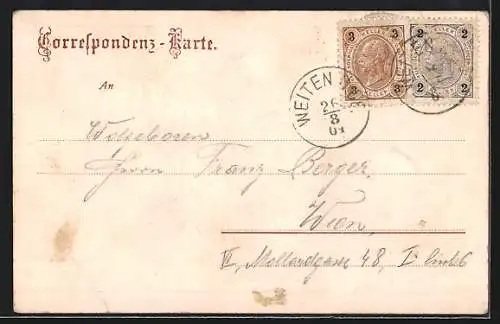 Correspondenz-Karte.
3 3
3 3
2 2
2 2
WEITEN
26
8
01
An
Wohlgeboren
Herrn Franz Berger,
Wien, "
VI, Mollardgasse 48, I. links